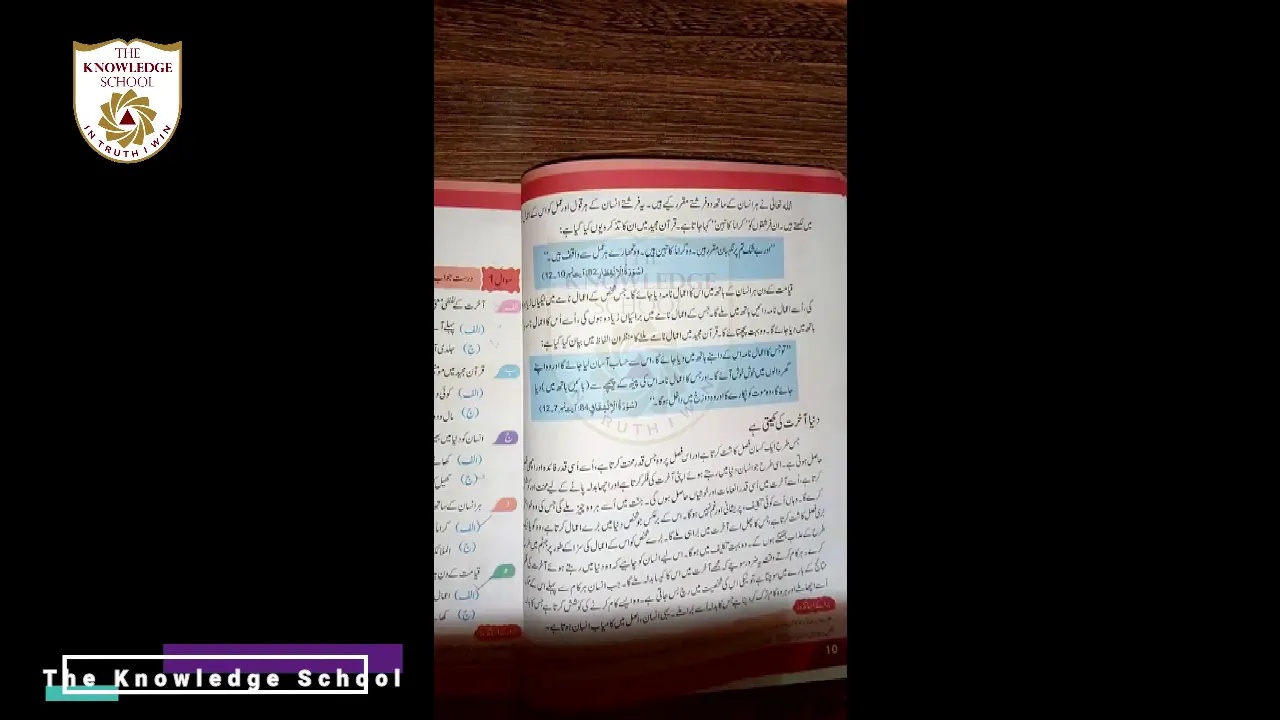 THE
KNOWLEDGE
SCHOOL
IN TRUTH I WIN
اللہ تعالیٰ نے ہر انسان کے ساتھ دو فرشتے مقرر کیے ہیں۔ یہ فرشتے انسان کے ہر قول اور عمل کو اس کے
میں لکھتے ہیں۔ ان فرشتوں کو "کراماً کاتبین" کہا جاتا ہے۔ قرآن مجید میں ان کا تذکرہ یوں کیا گیا ہے:
"اور بے شک تم پر نگہبان مقرر ہیں۔ وہ کراماً کاتبین ہیں۔ وہ تمھارے ہر عمل سے واقف ہیں۔"
(سُوْرَةُ الْاِنْفِطَار 82: آیت نمبر 10۔12)
قیامت کے دن ہر انسان کے ہاتھ میں اس کا اعمال نامہ دیا جائے گا۔ جس شخص کے اعمال نامے میں نیکیاں
گی، اُسے اعمال نامہ دائیں ہاتھ میں ملے گا۔ جس کے اعمال نامے میں برائیاں زیادہ ہوں گی، اُسے اُس کا اعمال
ہاتھ میں دیا جائے گا۔ وہ بہت پچھتائے گا۔ قرآن مجید میں اعمال نامے ملنے کا منظر ان الفاظ میں بیان کیا گیا ہے:
"تو جس کا اعمال نامہ اس کے داہنے ہاتھ میں دیا جائے گا، اس سے حساب آسان لیا جائے گا اور وہ اپنے
گھر والوں میں خوش خوش آئے گا۔ اور جس کا اعمال نامہ اس کی پیٹھ کے پیچھے سے (بائیں ہاتھ میں) دیا
جائے گا، وہ موت کو پکارے گا اور وہ دوزخ میں داخل ہوگا۔" (سُوْرَةُ الْاِنْشِقَاق 84: آیت نمبر 7۔12)
دنیا آخرت کی کھیتی ہے
جس طرح ایک کسان فصل کاشت کرتا ہے اور اس فصل پر وہ جس قدر محنت کرتا ہے، اُسے اُسی قدر فائدہ اور
حاصل ہوتی ہے۔ اسی طرح جو انسان دنیا میں رہتے ہوئے اپنی آخرت کی فکر کرتا ہے اور اچھا بدلہ پانے کے لیے محنت اور
کرتا ہے، اُسے آخرت میں اُسی قدر انعامات اور خوشیاں حاصل ہوں گی۔ جنت میں اُسے ہر وہ چیز ملے گی جس کی وہ
کرے گا۔ وہاں اُسے کوئی تکلیف، پریشانی اور غم نہیں ہوگا۔ اس کے برعکس جو شخص دنیا میں برے اعمال کرتا ہے، وہ گویا
بری فصل کاشت کرتا ہے، جس کا پھل اسے آخرت میں برا ہی ملے گا۔ برے شخص کو اس کے اعمال کی سزا کے طور پر جہنم میں
طرح کے عذاب ہوں گے۔ وہ بہت تکلیف میں ہوگا۔ اس لیے انسان کو چاہیے کہ وہ دنیا میں رہتے ہوئے آخرت کی
کرے۔ ہر کام کرتے وقت یہ ضرور سوچے کہ مجھے آخرت میں اس کا کیسا بدلہ ملے گا۔ جب انسان ہر کام سے پہلے اس کے
نتائج کے بارے میں سوچتا ہے تو نیکی اس کی شخصیت میں رچ بس جاتی ہے۔ وہ ایسے کام کرنے کی کوشش کرتا ہے جس کا
اُسے اچھا ملے اور ہر وہ کام ترک کر دیتا ہے جس کا بدلہ اُسے برا ملے۔ یہی انسان اصل میں کامیاب انسان ہوتا ہے۔
10
سوال 1
الف
آخرت کے لفظی
(الف) پہلے
(ج) جلدی
ب
قرآن مجید میں
(الف) کوئی
(ج) مال و
ج
انسان کو دنیا میں
(الف)
(ج) کھیل
د
ہر انسان کے ساتھ
(الف) کراماً
(ج)
ہ
قیامت کے دن
(الف) اعمال
(ج)
The Knowledge School